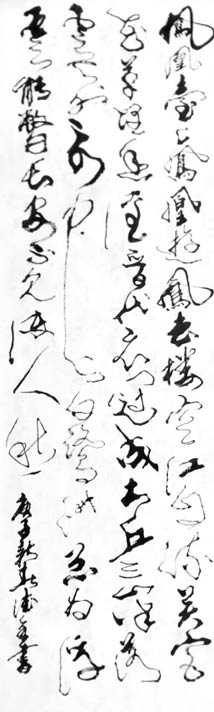 鳳凰臺上鳳凰遊鳳去樓空江自流吳宮
花草埋幽徑晉代衣冠成古丘三山半落
青天外二水中分白鷺洲總為浮
雲能蔽日長安不見使人愁 庚子新春書